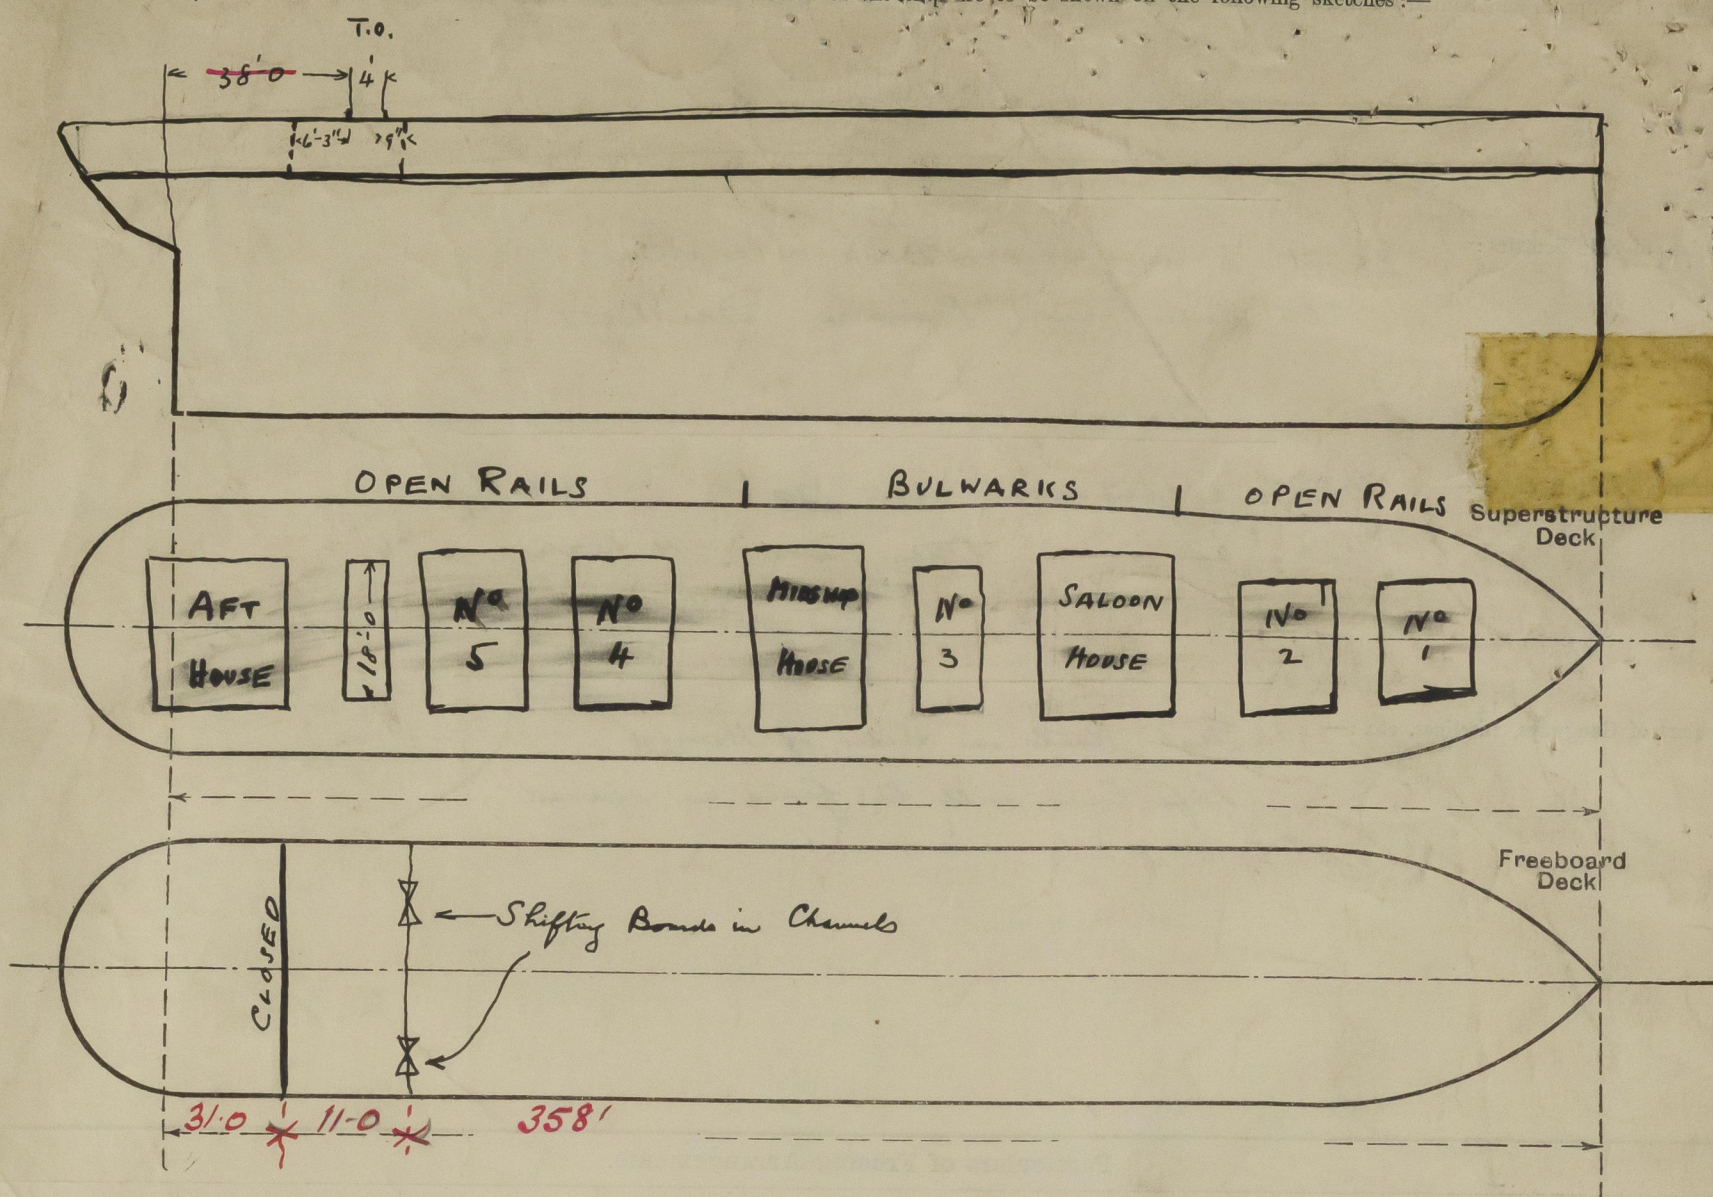 to be shown on the following sketches :—
T.O.
38'-0 4'
6'-3" 9"
OPEN RAILS BULWARKS OPEN RAILS
Superstructure
Deck
AFT
HOUSE
18'-0
No
5
No
4
MIDSHIP
HOUSE
No
3
SALOON
HOUSE
No
2
No
1
Freeboard
Deck
CLOSED
Shifting Boards in Channels
31-0 11-0 358'